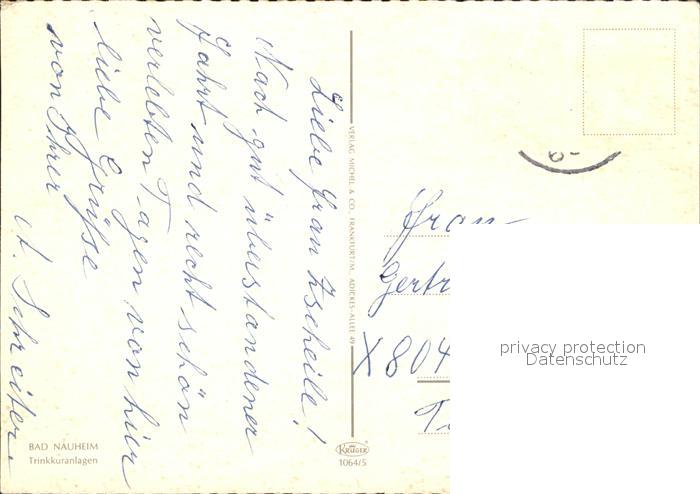 Liebe Frau Zscheile!
Nach gut überstandener
Fahrt und recht schön
verlebten Tagen von hier
liebe Grüße
von Ihrer
A. Schreiter.
VERLAG MICHEL & CO., FRANKFURT/M. ADICKES-ALLEE 49
Frau
Gertr
X 804
BAD NAUHEIM
Trinkkuranlagen
KRÜGER
1064/5
privacy protection
Datenschutz